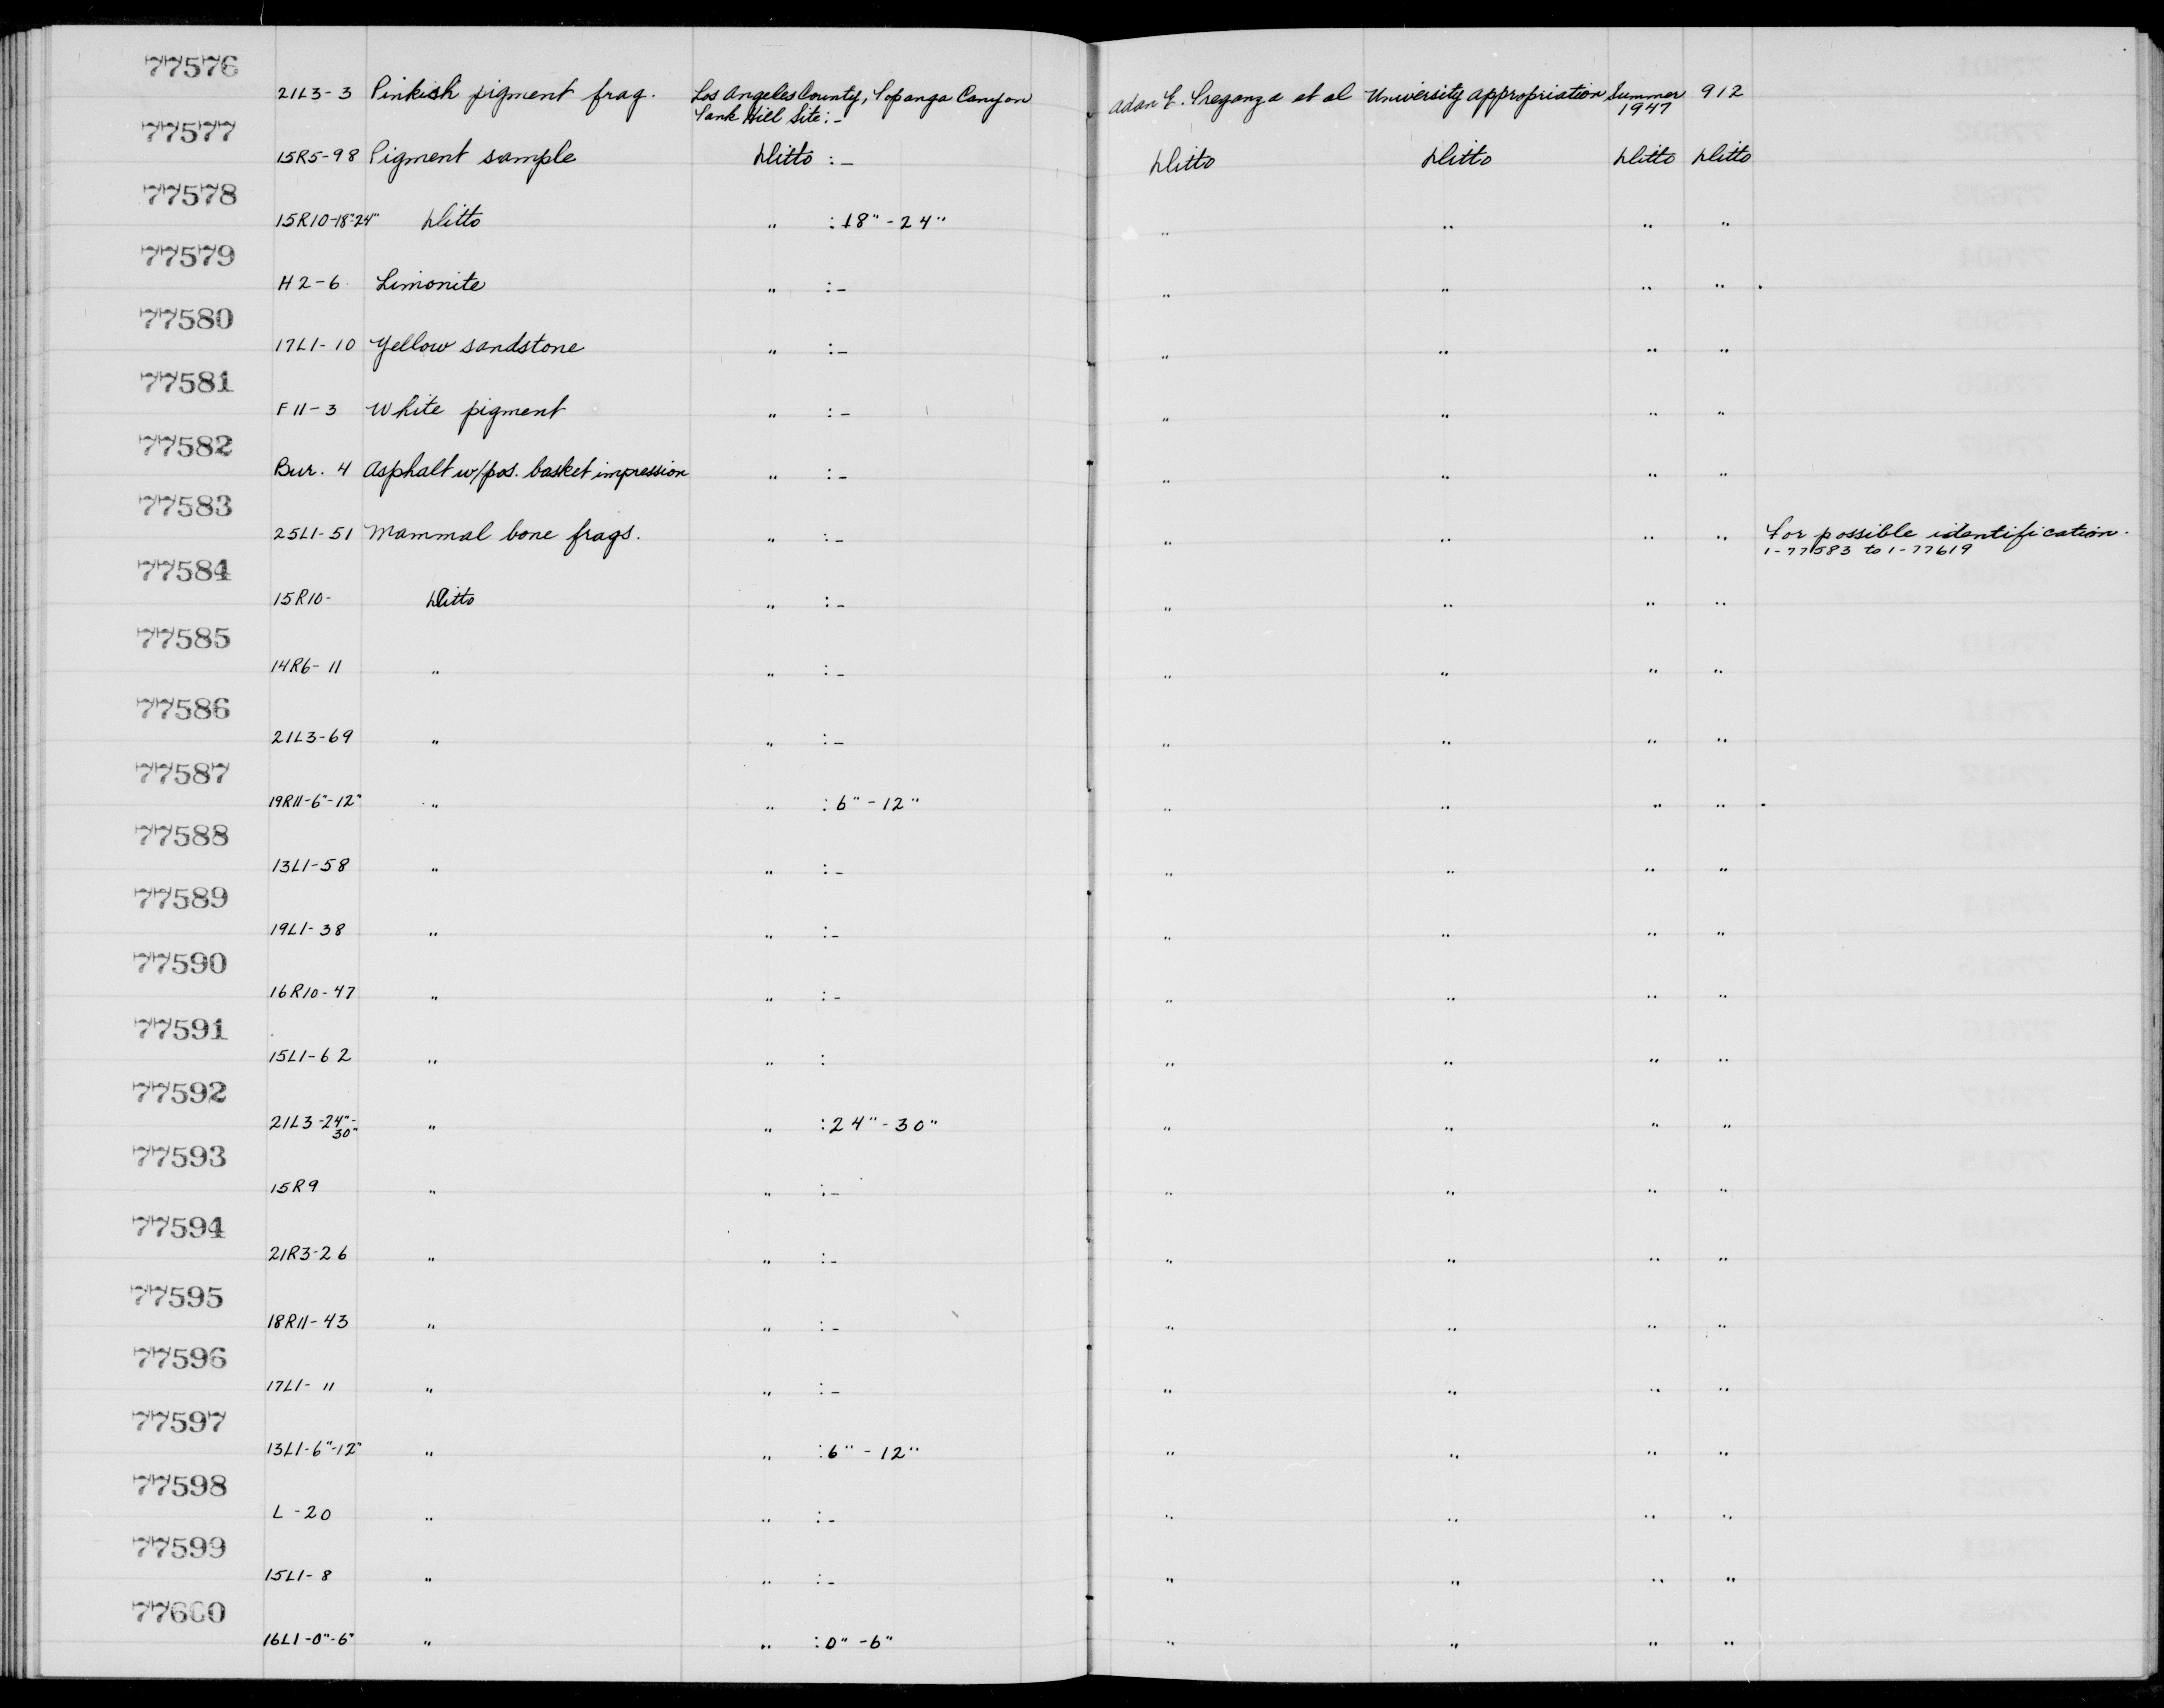 77576
21L3-3 Pinkish pigment frag. Los Angeles County, Topanga Canyon Adan E. Treganza et al University Appropriation Summer 912
Tank Hill Site:- 1947
77577
15R5-98 Pigment sample Ditto :- Ditto Ditto Ditto Ditto
77578
15R10-18"-24" Ditto " :18"-24" " " " "
77579
H2-6 Limonite " :- " " " "
77580
17L1-10 Yellow sandstone " :- " " " "
77581
F11-3 White pigment " :- " " " "
77582
Bur. 4 Asphalt w/pos. basket impression " :- " " " "
77583
25L1-51 Mammal bone frags. " :- " " " " For possible identification.
1-77583 to 1-77619
77584
15R10- Ditto " :- " " " "
77585
14R6-11 " " :- " " " "
77586
21L3-69 " " :- " " " "
77587
19R11-6"-12" " " :6"-12" " " " "
77588
13L1-58 " " :- " " " "
77589
19L1-38 " " :- " " " "
77590
16R10-47 " " :- " " " "
77591
15L1-62 " " : " " " "
77592
21L3-24"- " " :24"-30" " " " "
30"
77593
15R9 " " :- " " " "
77594
21R3-26 " " :- " " " "
77595
18R11-43 " " :- " " " "
77596
17L1-11 " " :- " " " "
77597
13L1-6"-12" " " :6"-12" " " " "
77598
L-20 " " :- " " " "
77599
15L1-8 " " :- " " " "
77600
16L1-0"-6" " " :0"-6" " " " "